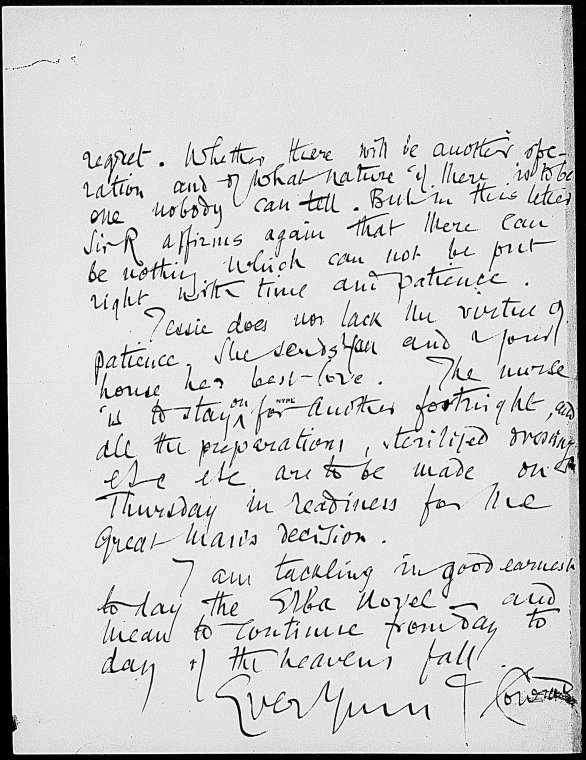 regret. Whether there will be another ope-
ration and of what nature if there is to be
one nobody can tell. But in this letter
Sir R affirms again that there can
be nothing which can not be put
right with time and patience.
Jessie does not lack the virtue of
patience. She sends you and your
house her best love. The nurse
is to stay on for another fortnight, and
NYPL
all the preparations, sterilized dressings
etc etc are to be made on
Thursday in readiness for the
Great Man's decision.
I am tackling in good earnest
to day the Elba Novel – and
mean to continue from day to
day if the heavens fall.
Ever Yours J Conrad